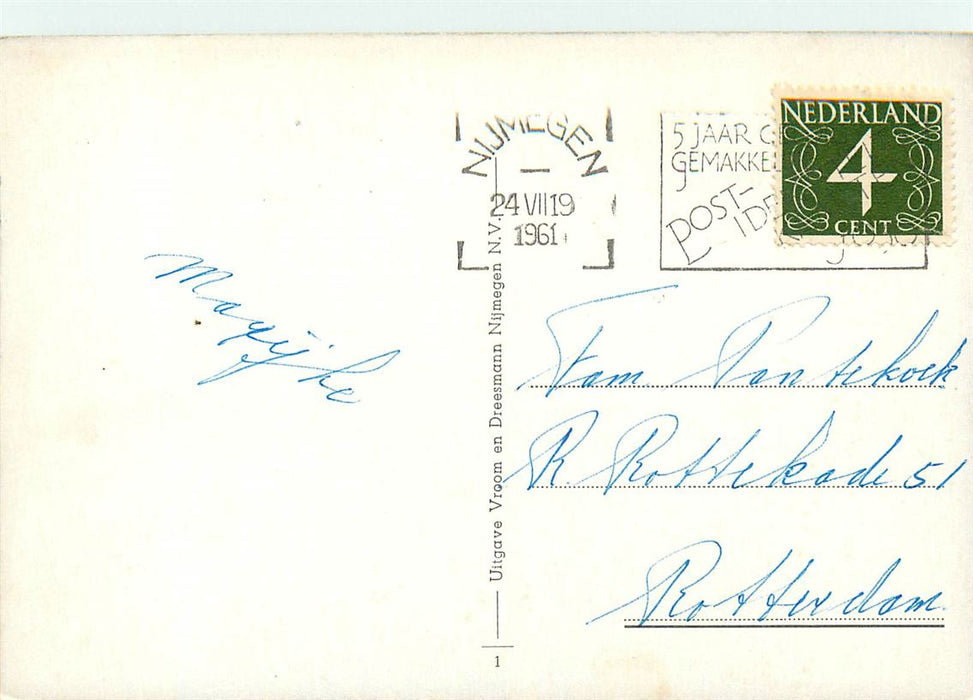 NIJMEGEN
24 VII 19
1961
5 JAAR GE
GEMAKKEL
POST-
IDE
NEDERLAND
4
CENT
Uitgave Vroom en Dreesmann Nijmegen N.V.
1
Fam Pannekoek
R. Rottekade 51
Rotterdam